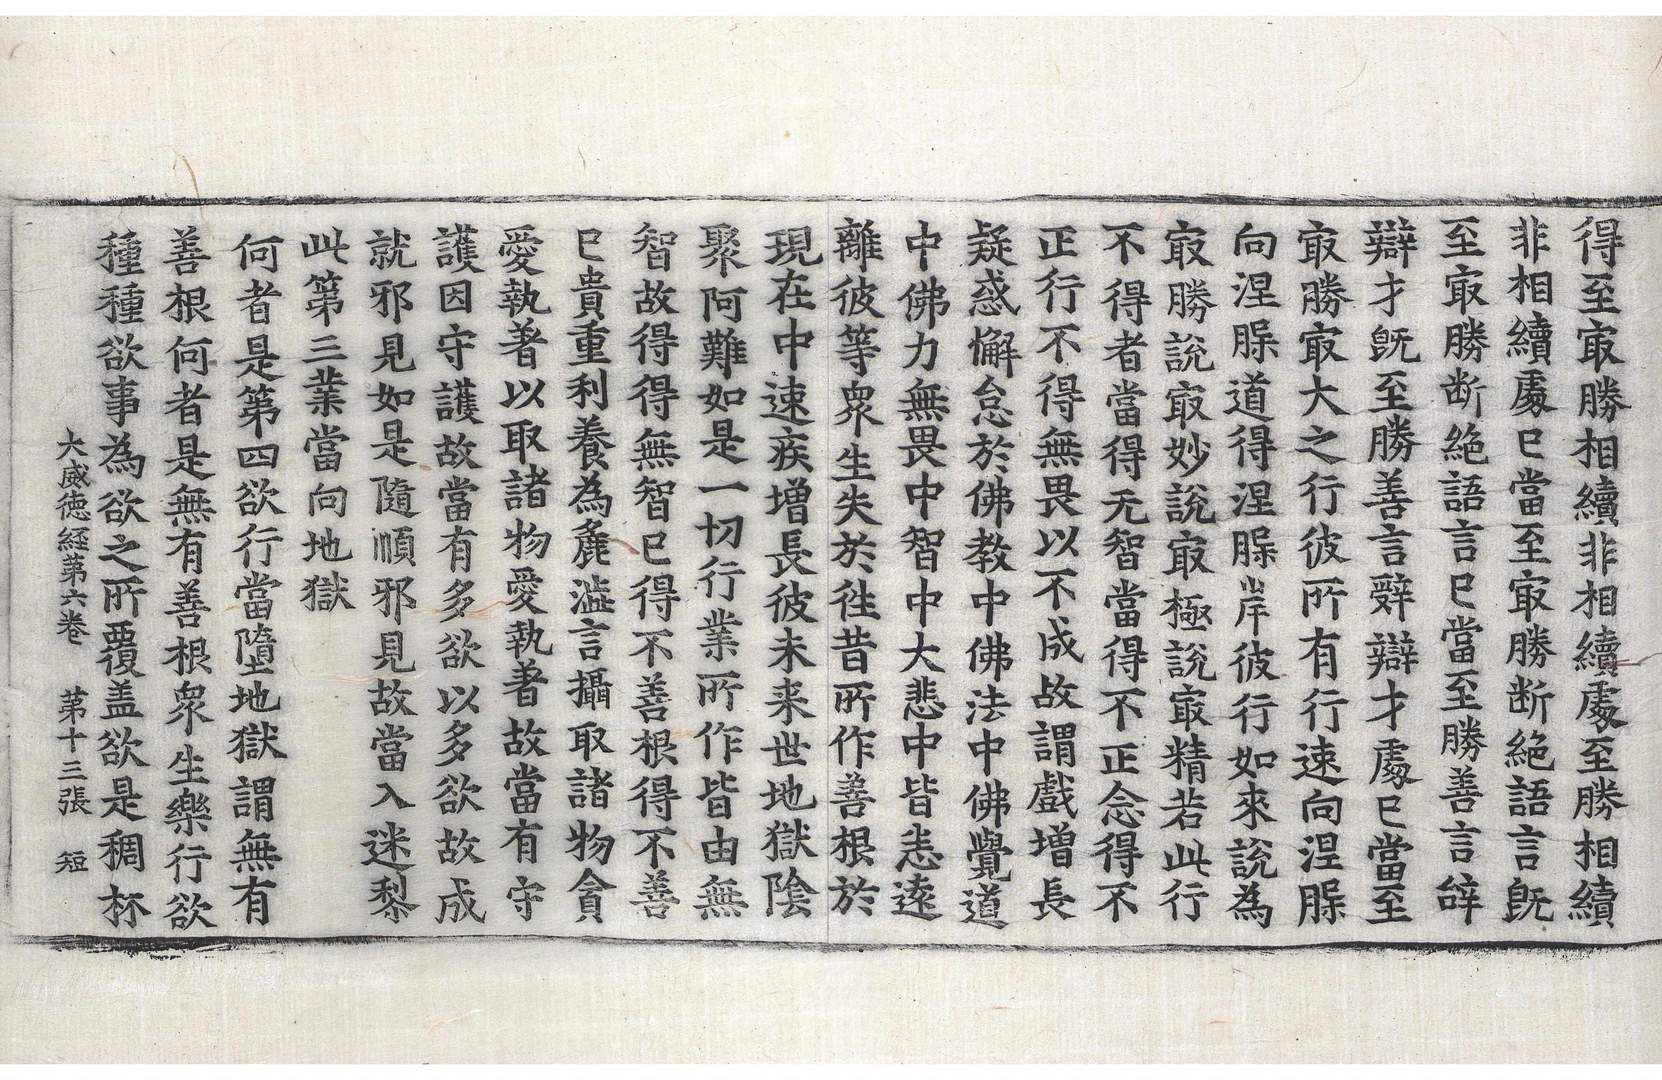 得至㝡勝相續非相續處至勝相續
非相續處已當至㝡勝断絶語言既
至㝡勝断絶語言已當至勝善言辝
辯才既至勝善言辤辯才處已當至
㝡勝㝡大之行彼所有行速向涅槃
向涅槃道得涅槃岸彼行如來說為
㝡勝說㝡妙說㝡極說㝡精若此行
不得者當得无智當得不正念得不
正行不得無畏以不成故謂戲增長
疑惑懈怠於佛教中佛法中佛覺道
中佛力無畏中智中大悲中皆悉遠
離彼等衆生失於徃昔所作善根於
現在中速疾增長彼未来世地獄陰
聚阿難如是一切行業所作皆由無
智故得得無智已得不善根得不善
已貴重利養為麁澁言攝取諸物貪
愛執著以取諸物愛執著故當有守
護因守護故當有多欲以多欲故成
就邪見如是隨順邪見故當入迷黎
此第三業當向地獄
何者是第四欲行當墮地獄謂無有
善根何者是無有善根衆生樂行欲
種種欲事為欲之所覆盖欲是稠林
大威徳経第六卷　第十三張　短